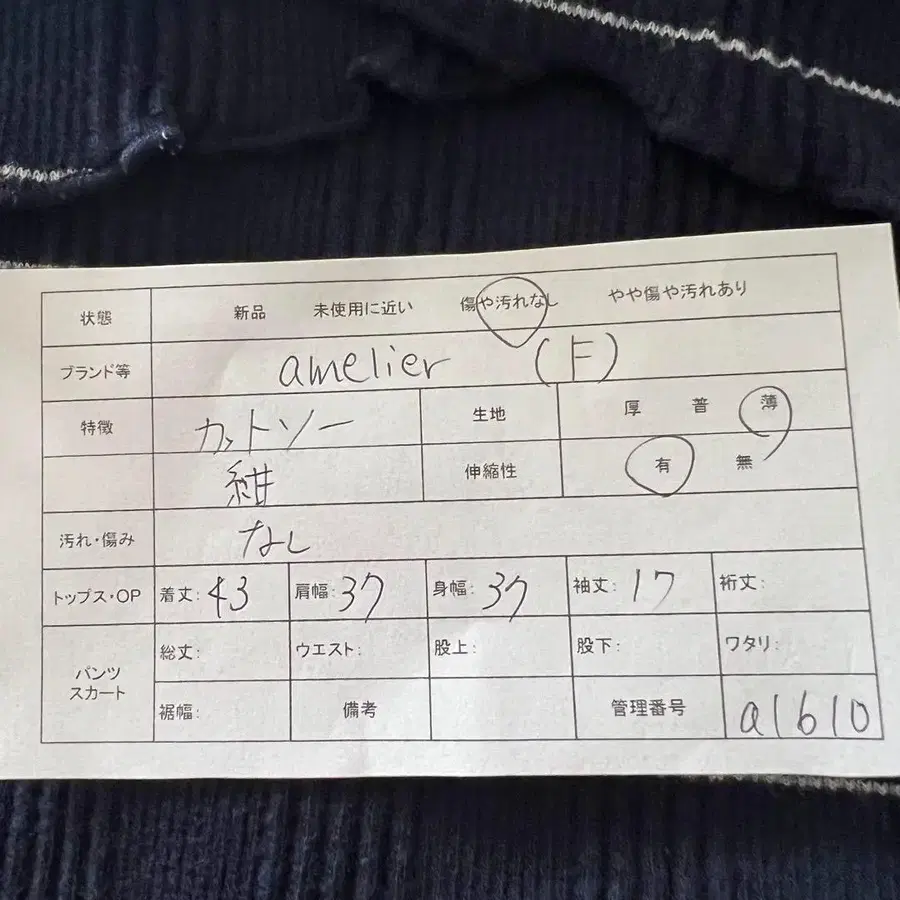 状態 新品 未使用に近い 傷や汚れなし やや傷や汚れあり
ブランド等 amelier (F)
特徴 カットソー 生地 厚 普 薄
紺 伸縮性 有 無
汚れ・傷み なし
トップス・OP 着丈: 43 肩幅: 37 身幅: 37 袖丈: 17 裄丈:
パンツ スカート 総丈: ウエスト: 股上: 股下: ワタリ:
裾幅: 備考 管理番号 a1610